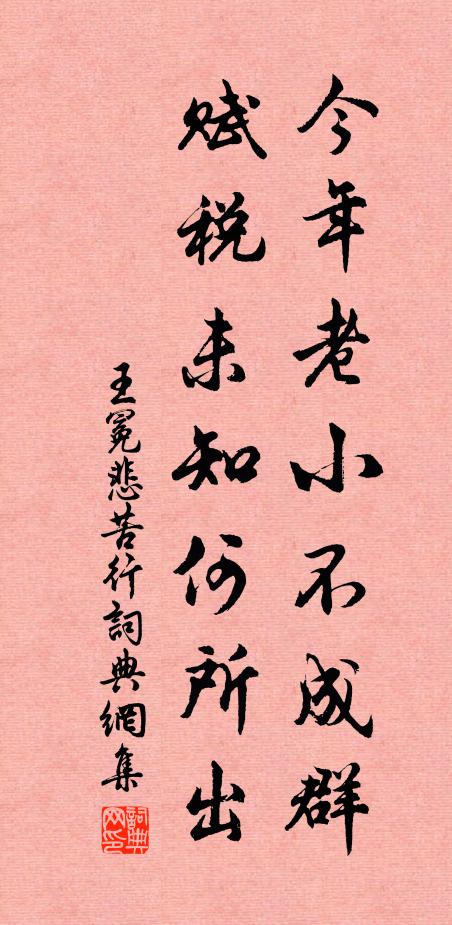 今年老小不成群
赋税未知何所出
王冕悲苦行詞典網集
詞典網印